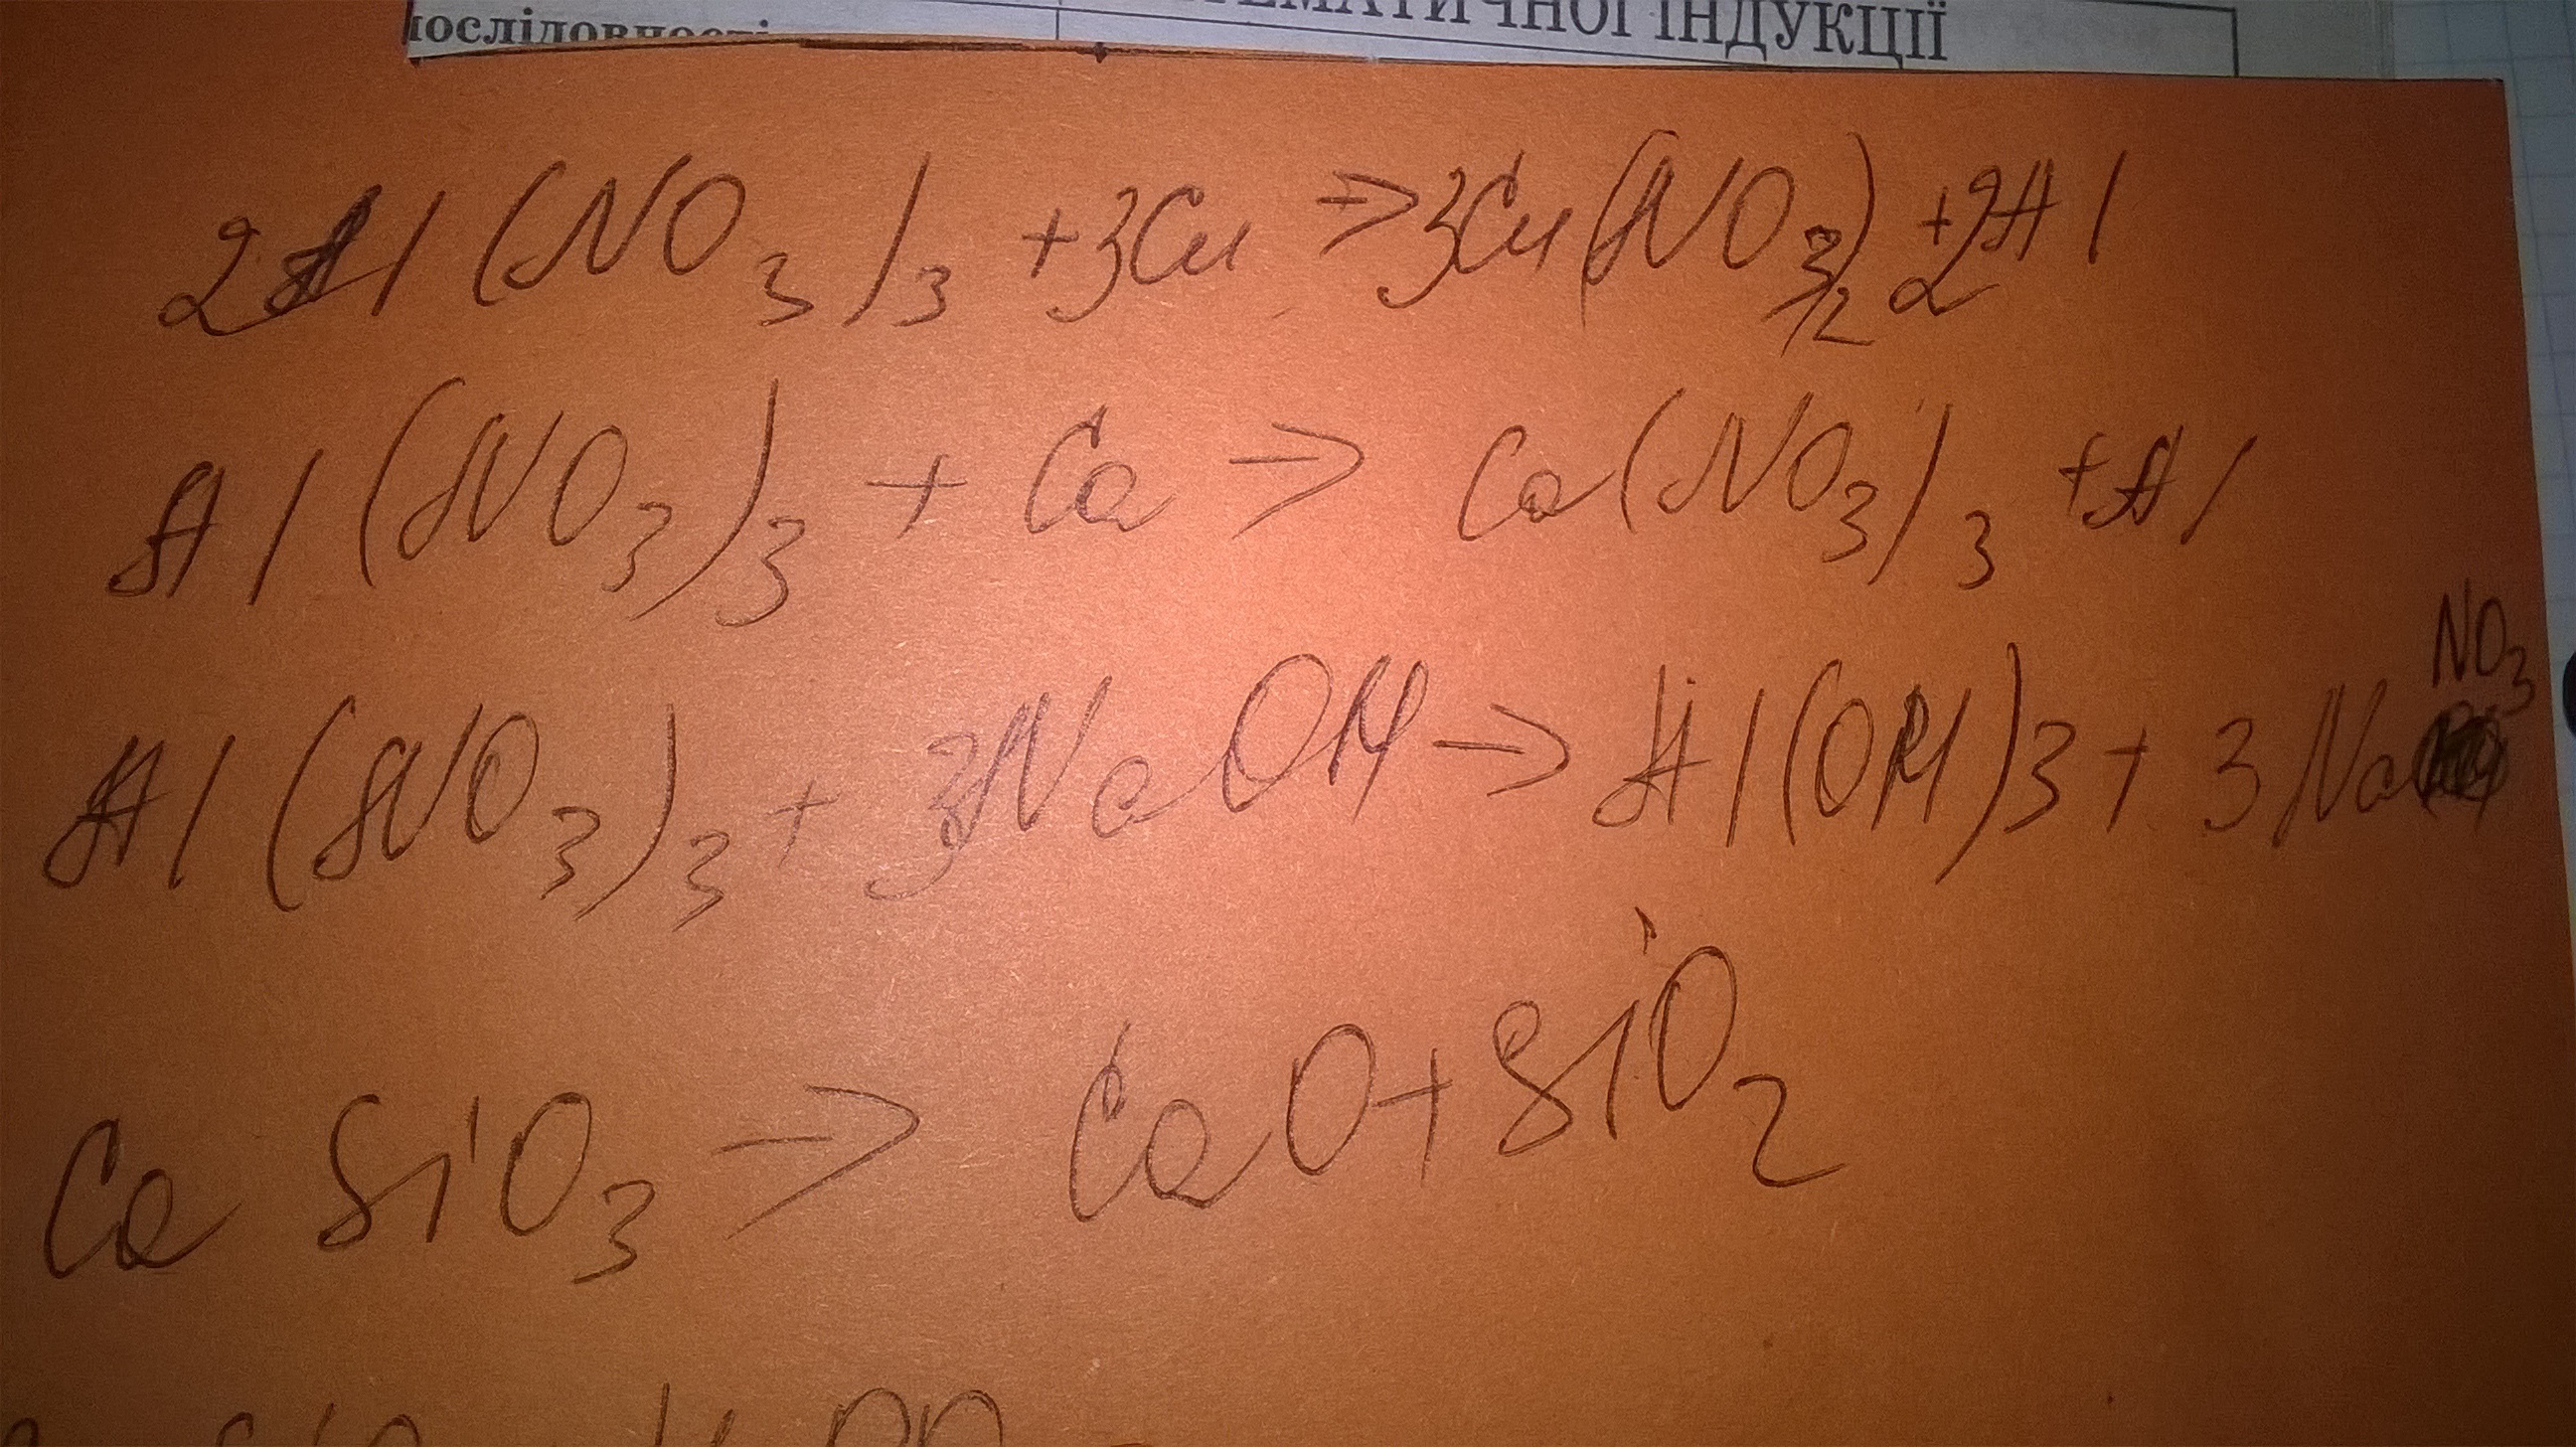 послідовності
ТЕМАТИЧНОЇ ІНДУКЦІЇ
2Al(NO3)3 + 3Cu → 3Cu(NO3)2 + 2Al
Al(NO3)3 + Ca → Ca(NO3)3 + Al
Al(NO3)3 + 3NaOH → Al(OH)3 + 3NaNO3
CaSiO3 → CaO + SiO2